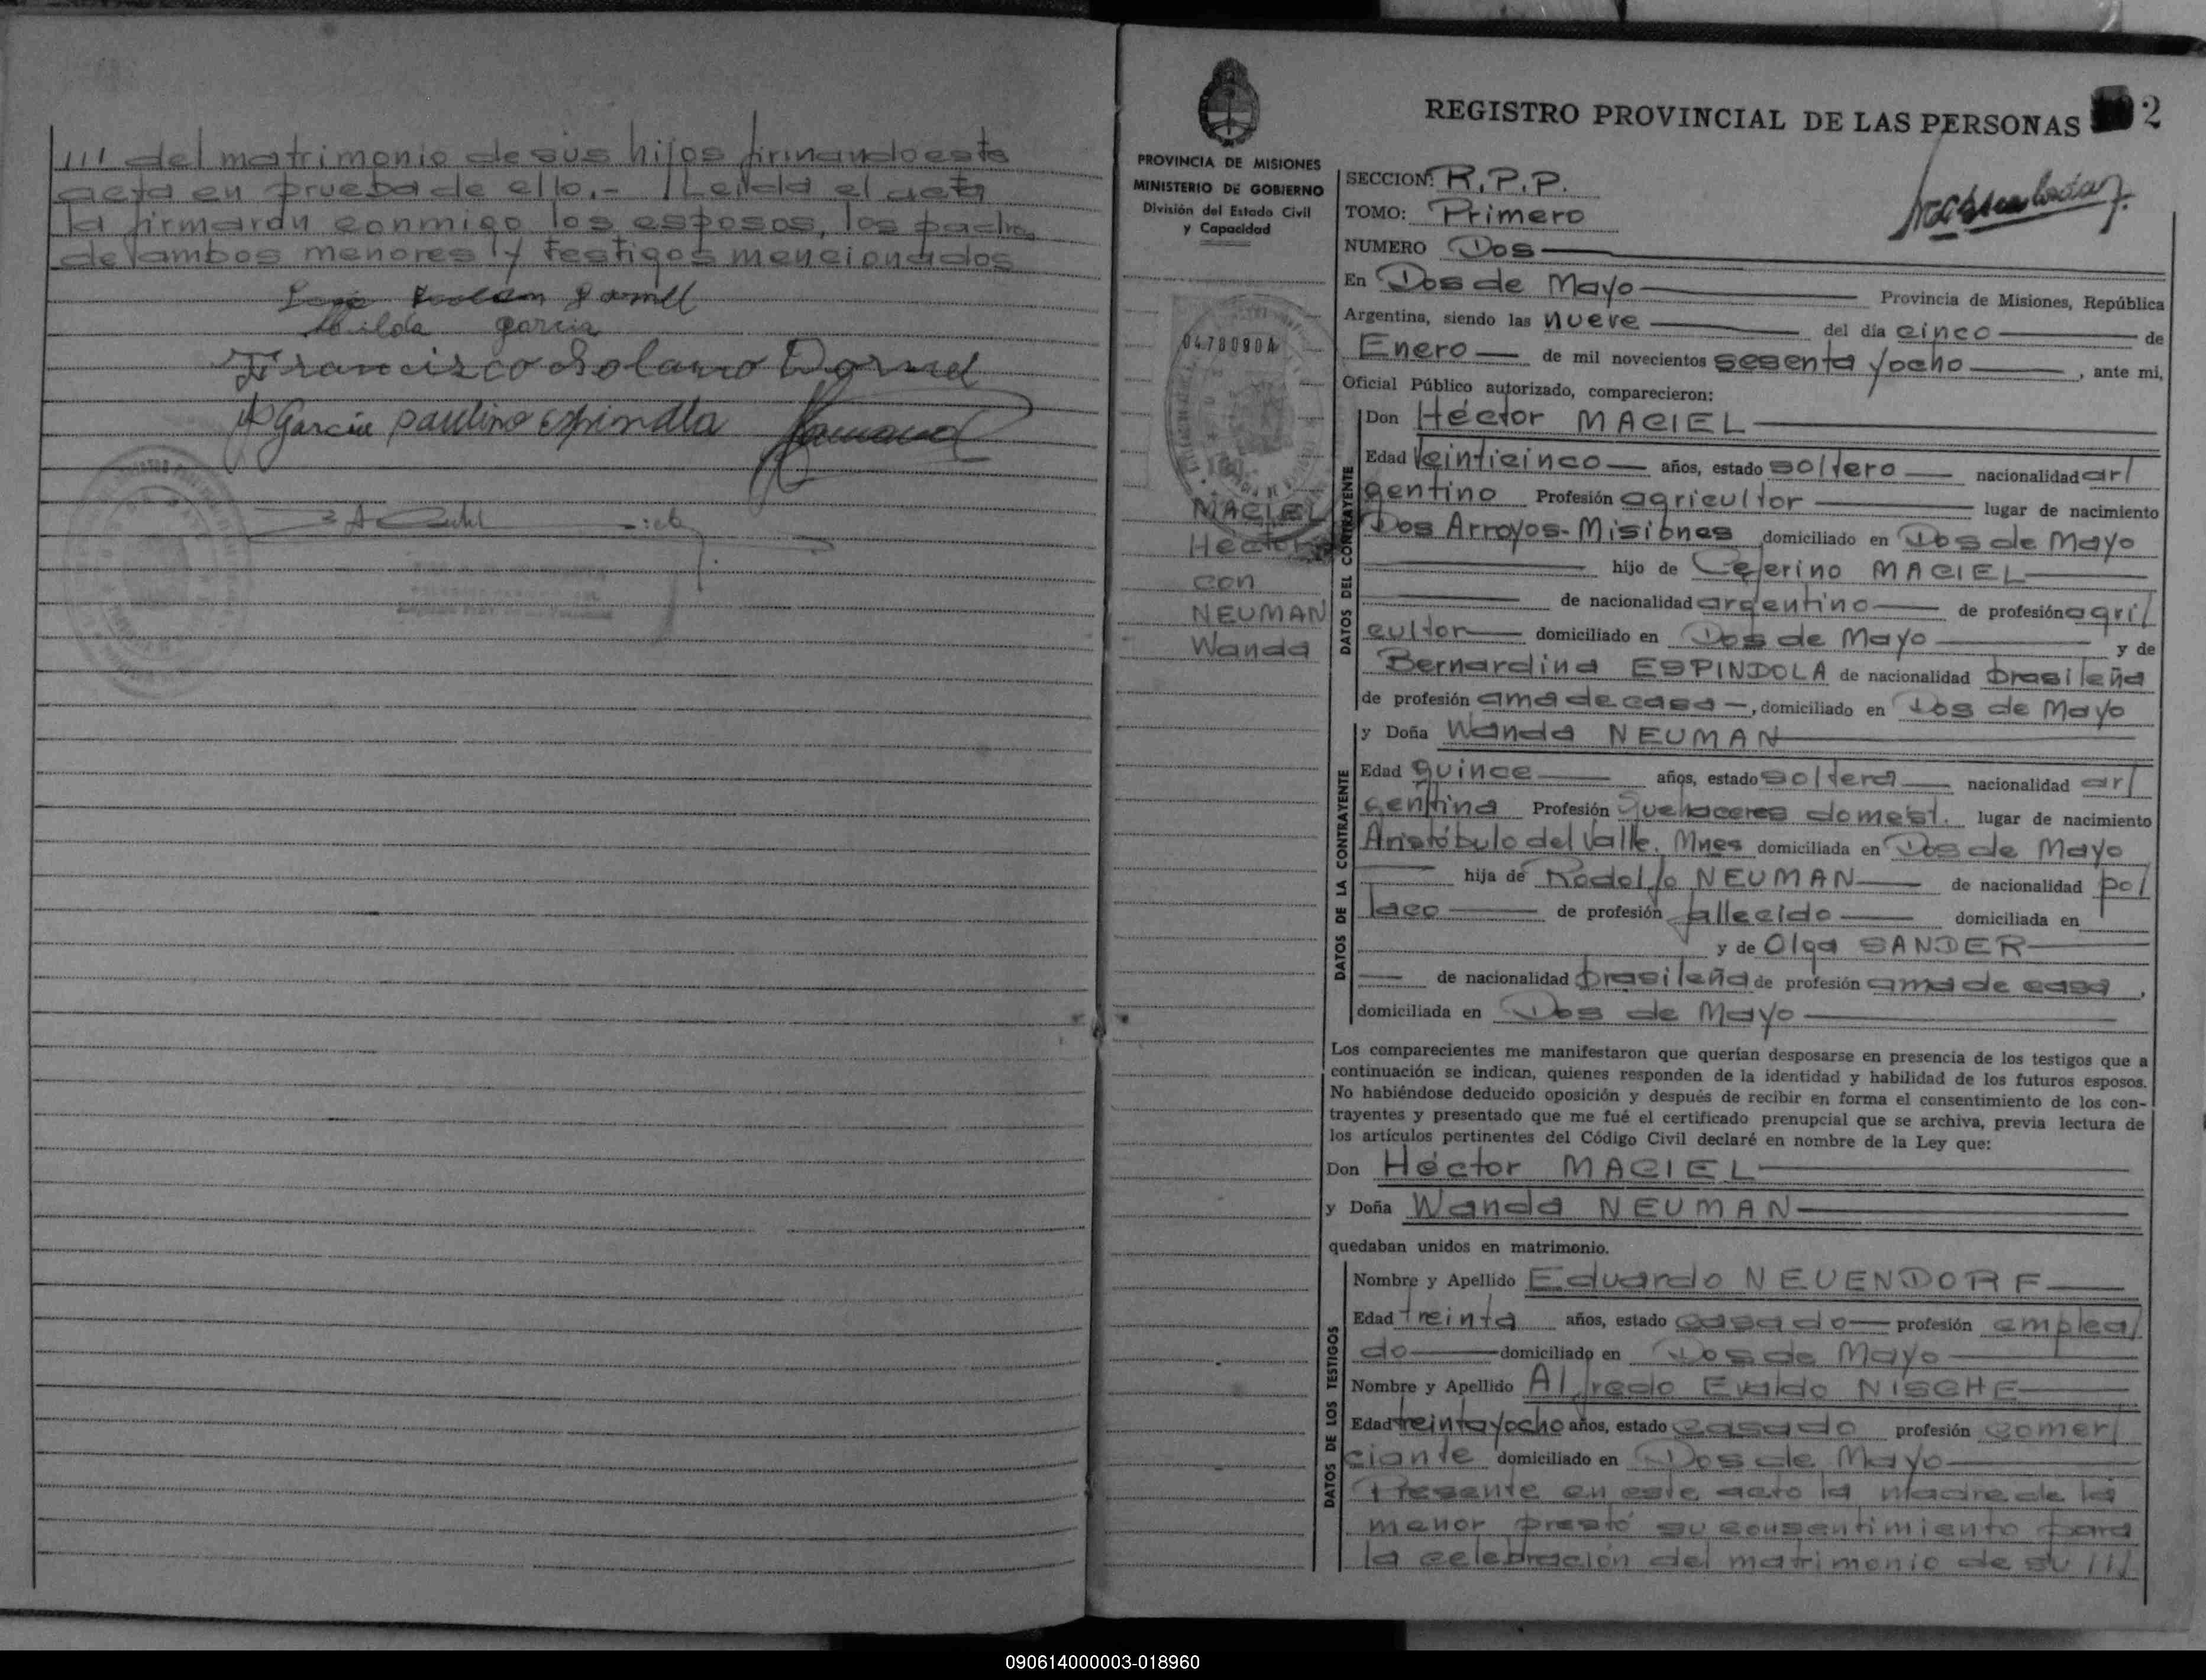 /// del matrimonio de sus hijos firmando esta
acta en prueba de ello.- Leida el acta
la firmaron conmigo los esposos, los padres
de ambos menores y testigos mencionados
Hilda garcia
Francisco Solano Dornel
Garcia paulino Espindola
REGISTRO PROVINCIAL DE LAS PERSONAS 2
PROVINCIA DE MISIONES
MINISTERIO DE GOBIERNO
División del Estado Civil
y Capacidad
0478090A
MACIEL
Hector
con
NEUMAN
Wanda
SECCION: R.P.P.
TOMO: Primero
NUMERO Dos
En Dos de Mayo Provincia de Misiones, República
Argentina, siendo las nueve del día cinco de
Enero de mil novecientos sesenta y ocho, ante mi,
Oficial Público autorizado, comparecieron:
DATOS DEL CONTRAYENTE
Don Héctor MACIEL
Edad Veinticinco años, estado soltero nacionalidad ar/
gentino Profesión agricultor lugar de nacimiento
Dos Arroyos-Misiones domiciliado en Dos de Mayo
hijo de Ceferino MACIEL
de nacionalidad argentino de profesión agri/
cultor domiciliado en Dos de Mayo y de
Bernardina ESPINDOLA de nacionalidad brasileña
de profesión ama de casa, domiciliado en Dos de Mayo
DATOS DE LA CONTRAYENTE
y Doña Wanda NEUMAN
Edad quince años, estado soltera nacionalidad ar/
gentina Profesión Quehaceres domést. lugar de nacimiento
Aristóbulo del Valle. Mnes domiciliada en Dos de Mayo
hija de Rodolfo NEUMAN de nacionalidad po/
laco de profesión fallecido domiciliada en
y de Olga SANDER
de nacionalidad brasileña de profesión ama de casa,
domiciliada en Dos de Mayo
Los comparecientes me manifestaron que querían desposarse en presencia de los testigos que a
continuación se indican, quienes responden de la identidad y habilidad de los futuros esposos.
No habiéndose deducido oposición y después de recibir en forma el consentimiento de los con-
trayentes y presentado que me fué el certificado prenupcial que se archiva, previa lectura de
los artículos pertinentes del Código Civil declaré en nombre de la Ley que:
Don Héctor MACIEL
y Doña Wanda NEUMAN
quedaban unidos en matrimonio.
DATOS DE LOS TESTIGOS
Nombre y Apellido Eduardo NEUENDORF
Edad treinta años, estado casado profesión emplea/
do domiciliado en Dos de Mayo
Nombre y Apellido Alfredo Evaldo NISCHE
Edad treinta y ocho años, estado casado profesión comer/
ciante domiciliado en Dos de Mayo
Presente en este acto la madre de la
menor prestó su consentimiento para
la celebración del matrimonio de su ///
090614000003-018960